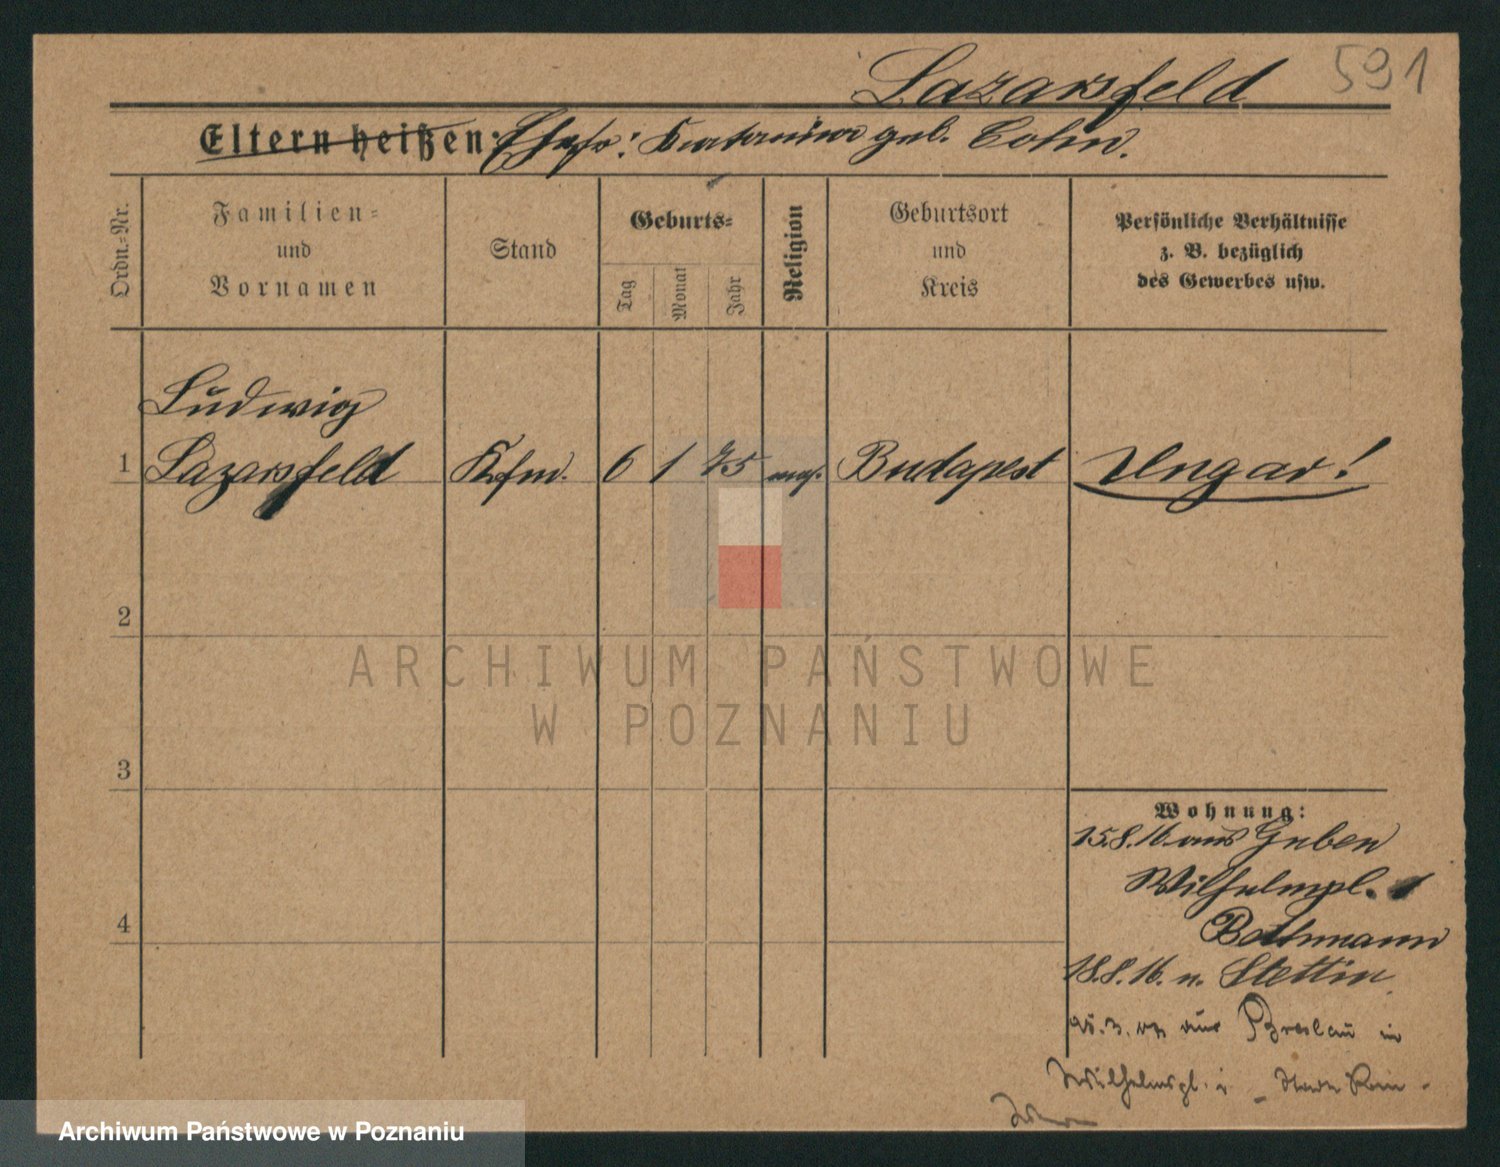 591
Lazarsfeld
Eltern heißen: Ehefr: geb. Cohn.
Ordn.=Nr.
Familien=
und
Vornamen
Stand
Geburts=
Tag
Monat
Jahr
Religion
Geburtsort
und
Kreis
Persönliche Verhältnisse
z. B. bezüglich
des Gewerbes usw.
Ludwig
1 Lazarsfeld Kfm. 6 1 75 mos. Budapest Ungar!
2
3
4
Wohnung:
15.8.16. aus Guben
Wilhelmpl. 1
Bothmann
18.8.16. n. Stettin
aus Breslau in
Wilhelmspl. 1
ARCHIWUM PAŃSTWOWE
W POZNANIU
Archiwum Państwowe w Poznaniu